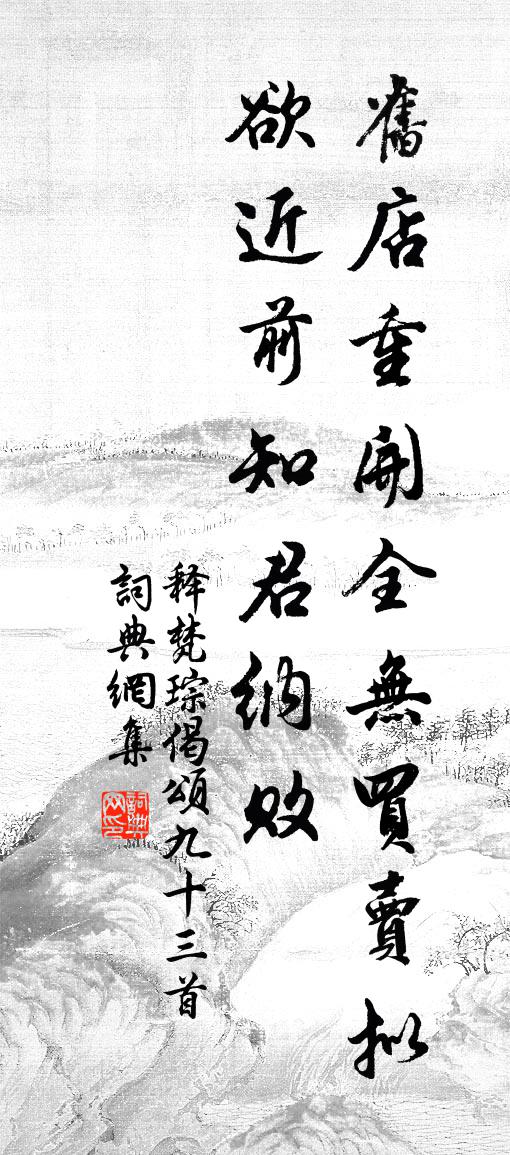 舊店重開全無買賣擬
欲近前知君納敗
释梵琮偈頌九十三首
詞典網集
詞典
网印